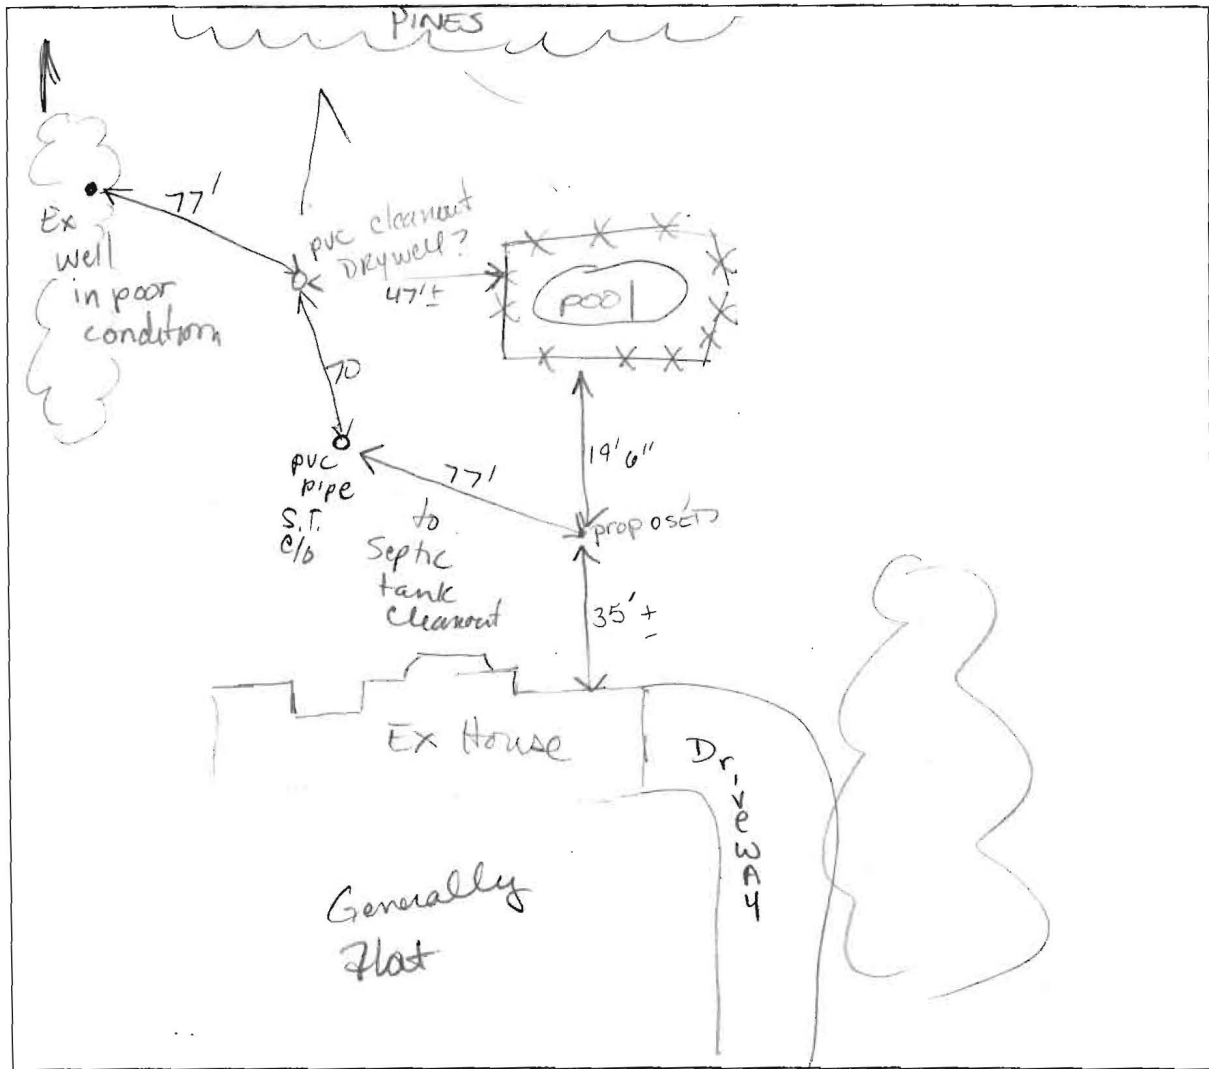 PINES
77'
Ex
well
in poor
condition
pvc cleanout
DRYwell?
47'±
pool
70
pvc
pipe
S.T.
c/o
77'
to
Septic
tank
Cleanout
19'6"
proposed
35'±
Ex House
Driveway
Generally
Flat